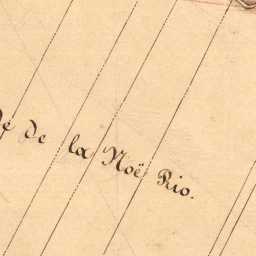 de la Noë Rio.